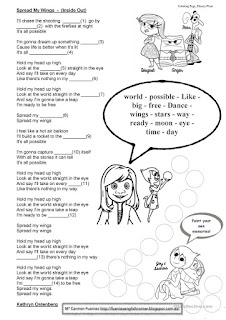 Spread My Wings - (Inside Out)
I'll chase the shooting ______(1) go by
______(2) with the fireflies at night
It's all possible
I'm gonna dream up something ______(3)
Cause life is better when it's lit
It's all ______(4)
Hold my head up high
Look at the ______(5) straight in the eye
And say I'll take on every day
Like there's nothing in my ______(6)
Hold my head up high
Look at the world straight in the eye
And say I'm gonna take a leap
I'm ready to be ______(7)
Spread my ______(8)
Spread my wings
I feel like a hot air balloon
I'll build a rocket to the ______(9)
It's all possible
I'm gonna capture ______(10) itself
With all the stories it can tell
It's all possible
Hold my head up high
Look at the world straight in the eye
And say I'll take on every ______(11)
Like there's nothing in my way
Hold my head up high
Look at the world straight in the eye
And say I'm gonna take a leap
I'm ready to be ______(12)
Spread my wings
Spread my wings
Spread my wings
Hold my head up high
Look at the world straight in the eye
And say I'll take on every day
______(13) there's nothing in my way
Hold my head up high
Look at the world straight in the eye
And say I'm gonna take a leap
I'm ______(14) to be free
Spread my wings
Spread my wings
Spread my wings
Kathryn Ostenberg
world - possible - Like -
big - free - Dance -
wings - stars - way -
ready - moon - eye -
time - day
Paint your own
memories!
Mª Carmen Fuentes